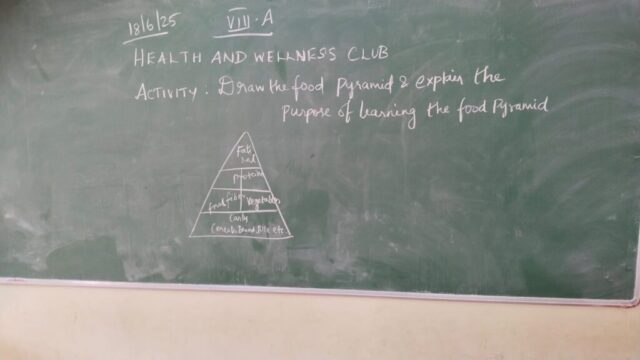 18/6/25 VIII-A
HEALTH AND WELLNESS CLUB
ACTIVITY: Draw the food Pyramid & explain the
purpose of learning the food Pyramid
Fats
Proteins
Vegetables
Carbs
Cereals, Bread, Rice etc